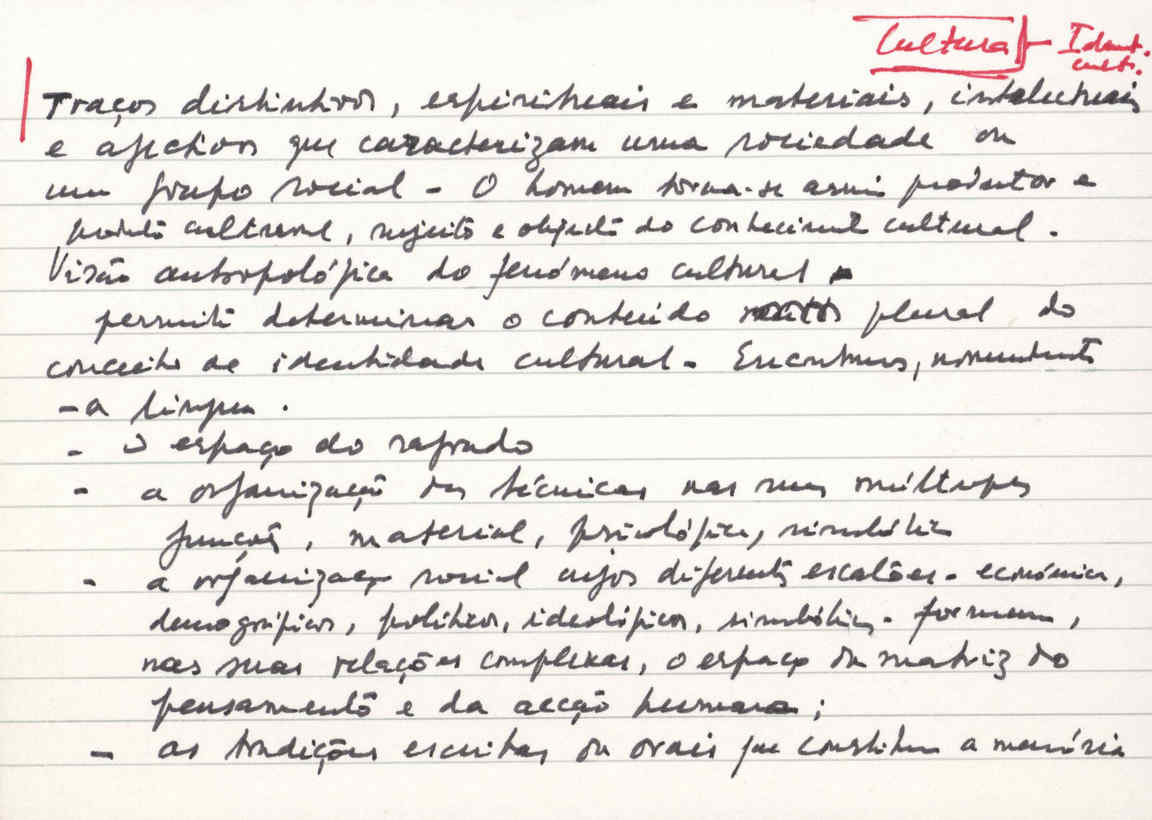 Cultura - Ident.
cult.
Traços distintivos, espirituais e materiais, intelectuais
e afectivos que caracterizam uma sociedade ou
um grupo social - O homem torna-se assim produtor e
produto cultural, sujeito e objecto do conhecimento cultural.
Visão antropológica do fenómeno cultural
permite determinar o conteúdo plural do
conceito de identidade cultural. Encontramos, nomeadamente
- a língua.
- o espaço do sagrado
- a organização das técnicas nas suas múltiplas
funções, material, psicológica, simbólica
- a organização social cujos diferentes escalões - económicos,
demográficos, políticos, ideológicos, simbólicos - formam,
nas suas relações complexas, o espaço da matriz do
pensamento e da acção humana;
- as tradições escritas ou orais que constituem a memória